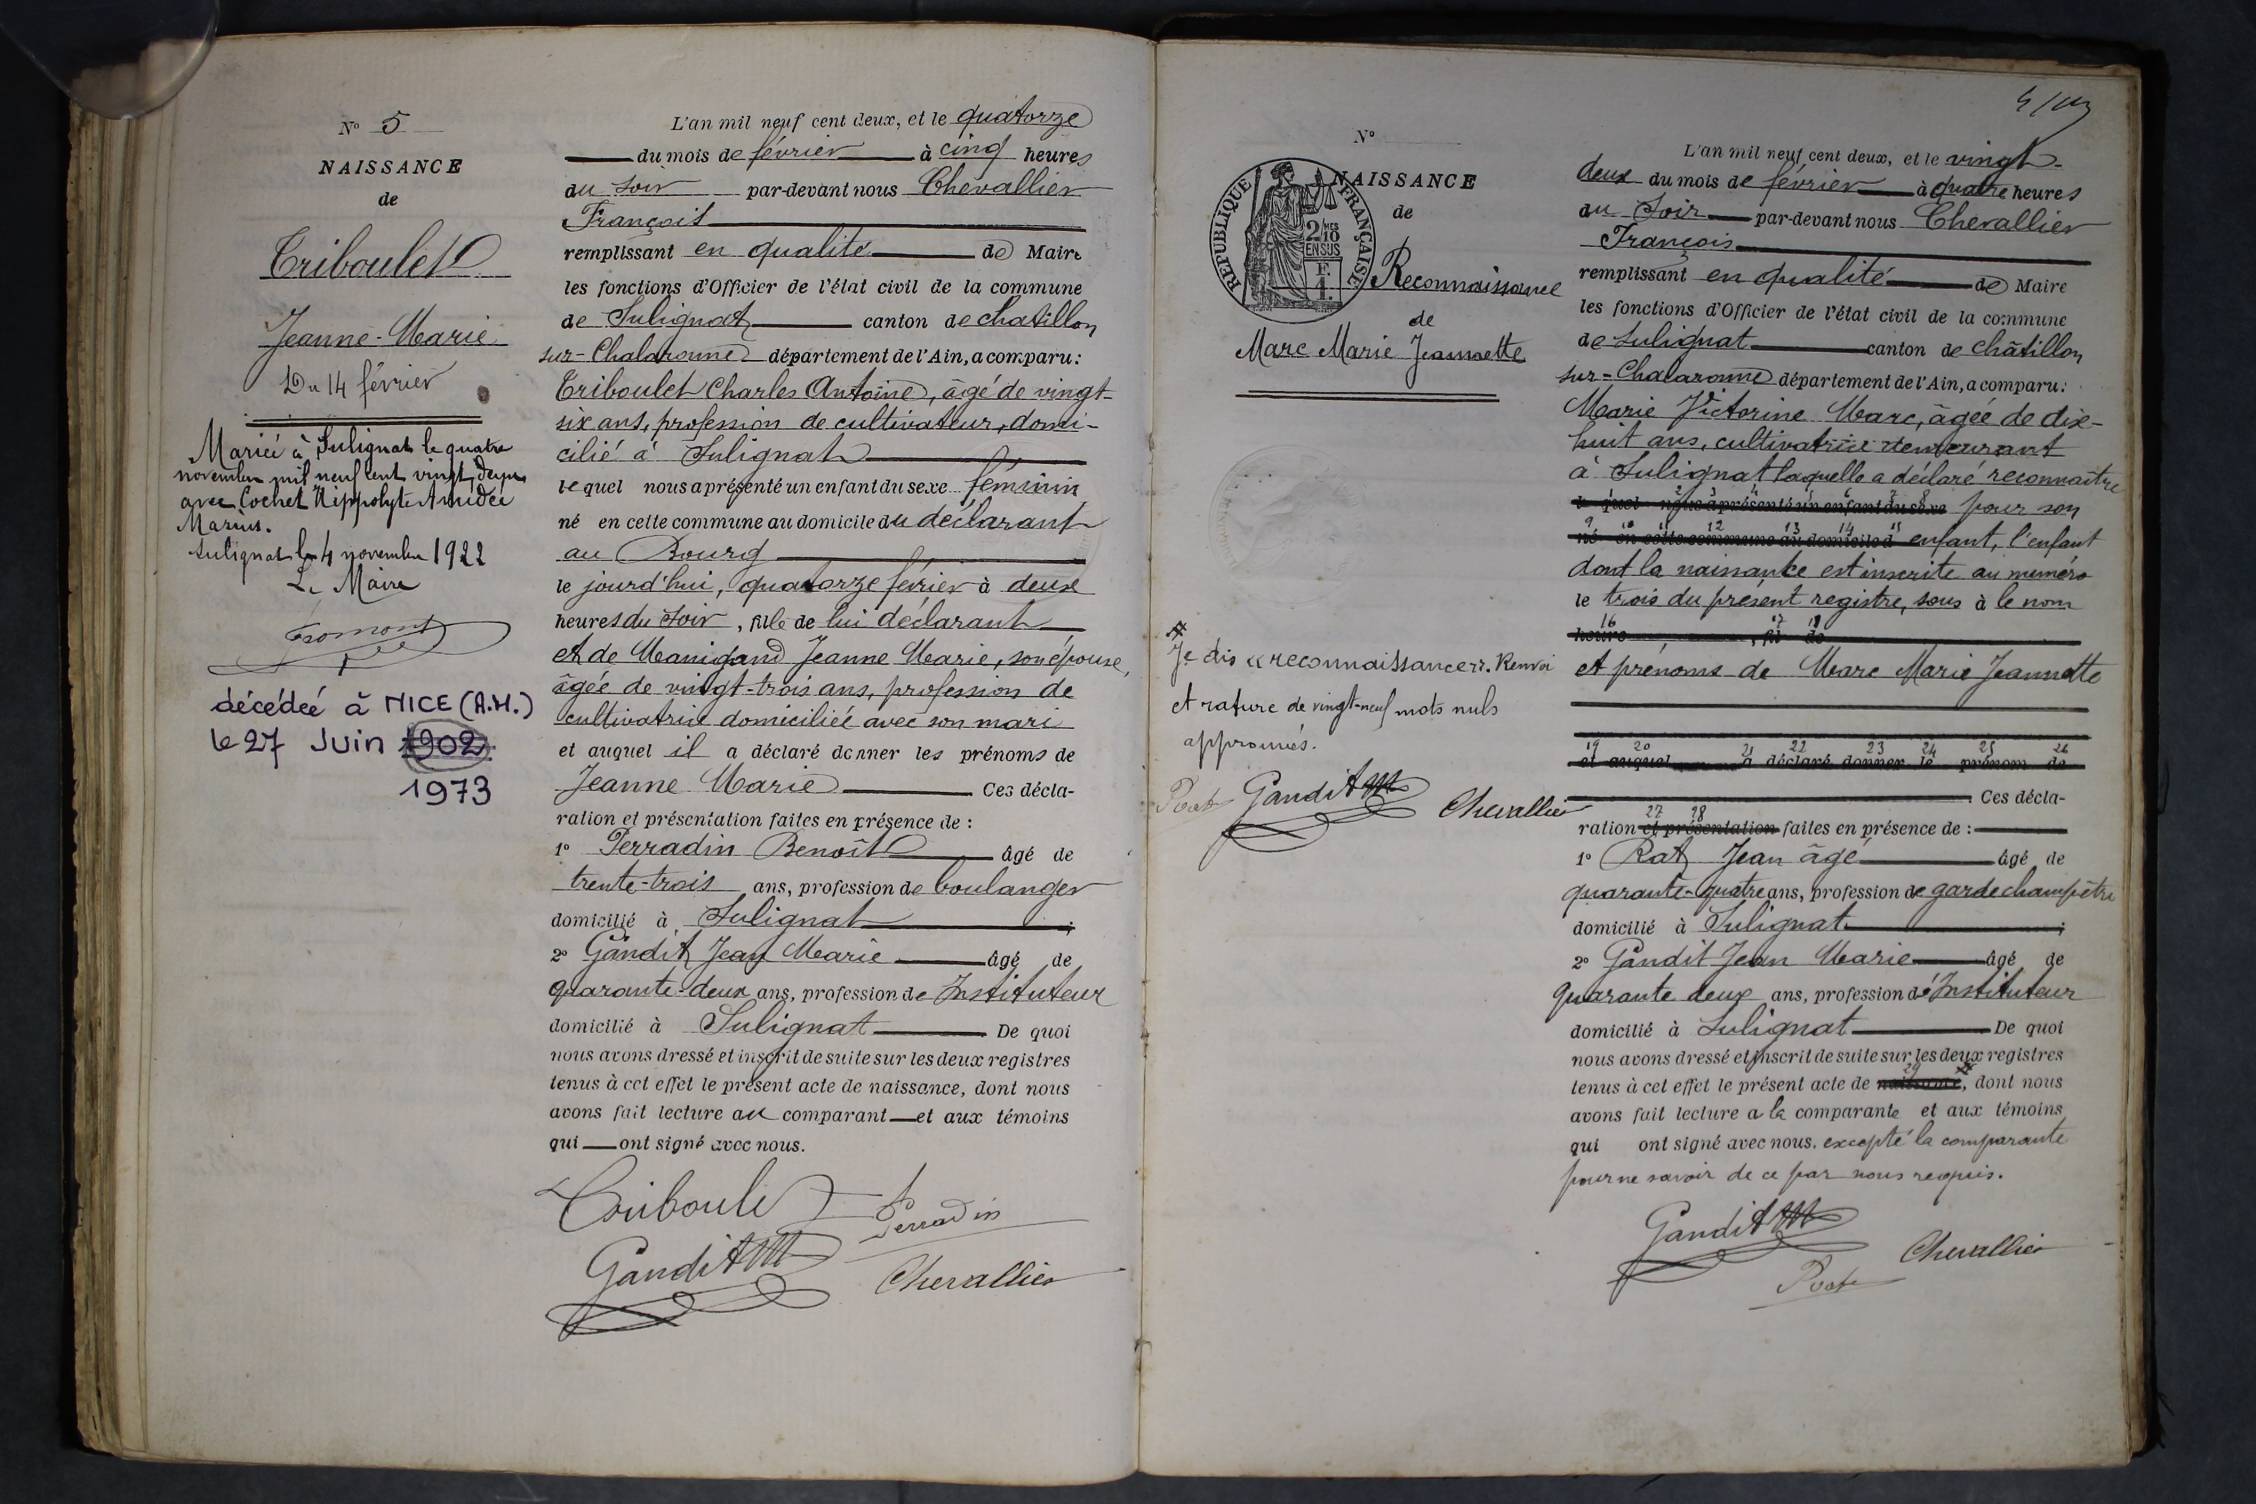 N° 5
NAISSANCE
de
Triboulet
Jeanne-Marie
Du 14 février
Mariée à Sulignat le quatre
novembre mil neuf cent vingt deux
avec Cochet Hippolyte Amédée
Marius.
Sulignat le 4 novembre 1922
Le Maire
Fromont
décédée à NICE (A.M.)
le 27 Juin 1902
1973
L'an mil neuf cent deux, et le quatorze
du mois de février à cinq heures
du soir par-devant nous Chevallier
François
remplissant en qualité de Maire
les fonctions d'Officier de l'état civil de la commune
de Sulignat canton de chatillon
sur-Chalaronne département de l'Ain, a comparu:
Triboulet Charles Antoine, âgé de vingt-
six ans, profession de cultivateur, domi-
cilié à Sulignat
lequel nous a présenté un enfant du sexe féminin
né en cette commune au domicile du déclarant
au Bourg
le jourd'hui, quatorze février à deux
heures du soir, fille de lui déclarant
et de Manigand Jeanne Marie, son épouse,
âgée de vingt-trois ans, profession de
cultivatrice domiciliée avec son mari
et auquel il a déclaré donner les prénoms de
Jeanne Marie Ces décla-
ration et présentation faites en présence de :
1° Perradin Benoît âgé de
trente-trois ans, profession de boulanger
domicilié à Sulignat ;
2° Gandit Jean Marie âgé de
quarante-deux ans, profession de Instituteur
domicilié à Sulignat De quoi
nous avons dressé et inscrit de suite sur les deux registres
tenus à cet effet le présent acte de naissance, dont nous
avons fait lecture au comparant et aux témoins
qui ont signé avec nous.
Triboulet Perradin
Gandit JM Chevallier
N°
NAISSANCE
de
RÉPUBLIQUE FRANÇAISE
2 MES 10
EN SUS
F.
1.
Reconnaissance
de
Marc Marie Jeannette
# Je dis "reconnaissance". Renvoi
et rature de vingt-neuf mots nuls
approuvés.
Rat Gandit JM Chevallier
L'an mil neuf cent deux, et le vingt-
deux du mois de février à quatre heures
du soir par-devant nous Chevallier
François
remplissant en qualité de Maire
les fonctions d'Officier de l'état civil de la commune
de Sulignat canton de châtillon
sur-Chalaronne département de l'Ain, a comparu:
Marie Victorine Marc, âgée de dix-
huit ans, cultivatrice demeurant
à Sulignat laquelle a déclaré reconnaître
le quel nous a présenté un enfant du sexe pour son
9 10 11 12 13 14 15
né en cette commune au domicile d enfant, l'enfant
dont la naissance est inscrite au numéro
le trois du présent registre, sous à le nom
16 17 18
heure , fi de
et prénoms de Marc Marie Jeannette
19 20 21 22 23 24 25 26
et auquel a déclaré donner le prénom de
Ces décla-
27 28
ration et présentation faites en présence de :
1° Rat Jean âgé âgé de
quarante-quatre ans, profession de garde champêtre
domicilié à Sulignat ;
2° Gandit Jean Marie âgé de
quarante deux ans, profession d'Instituteur
domicilié à Sulignat De quoi
nous avons dressé et inscrit de suite sur les deux registres
29 #
tenus à cet effet le présent acte de naissance, dont nous
avons fait lecture a la comparante et aux témoins
qui ont signé avec nous. excepté la comparante
pour ne savoir de ce par nous requis.
Gandit JM Chevallier
Rat